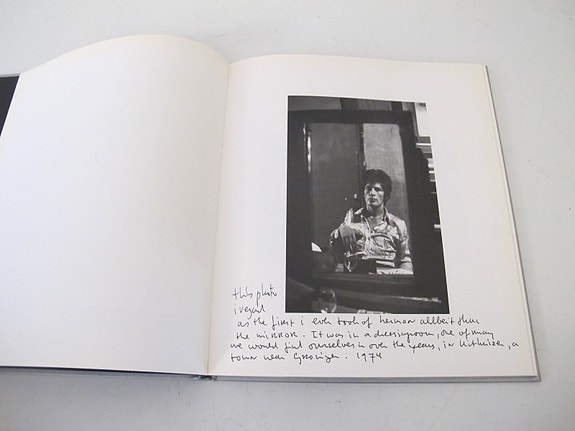 this photo
i regard
as the first i ever took of herman allbeit thru
the mirror. It was in a dressingroom, one of many
we would find ourselves in over the years, in Uithuizen, a
town near Groningen. 1974